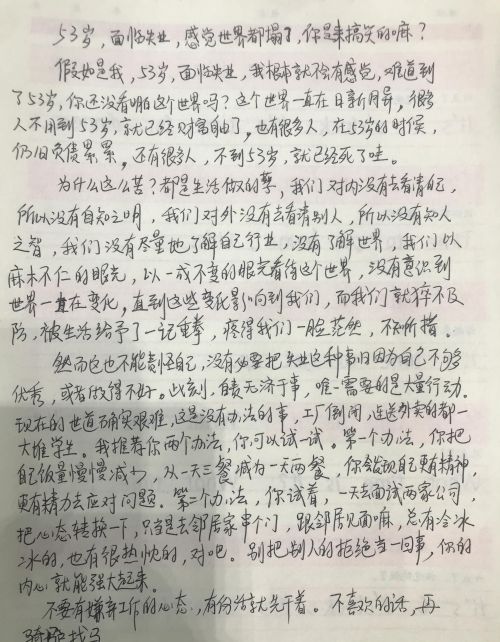 53岁，面临失业，感觉世界都塌了，你是来搞笑的嘛？
假如是我，53岁，面临失业，我根本就不会有感觉，难道到
了53岁，你还没看明白这个世界吗？这个世界一直在日新月异，很多
人不用到53岁，就已经财富自由了，也有很多人，在53岁的时候，
仍旧负债累累，还有很多人，不到53岁，就已经死了哇。
为什么这么苦？都是生活做的孽，我们对内没有去看清自己，
所以没有自知之明，我们对外没有去看清别人，所以没有知人
之智，我们没有尽量地了解自己行业，没有了解世界，我们以
麻木不仁的眼光，以一成不变的眼光看待这个世界，没有意识到
世界一直在变化，直到这些变化影响到我们，而我们就猝不及
防，被生活给予了一记重拳，疼得我们一脸茫然，不知所措。
然而这也不能责怪自己，没有必要把失业这种事归因为自己不够
优秀，或者做得不好。此刻，自责无济于事，唯一需要的是大量行动。
现在的世道确实艰难，这是没有办法的事，工厂倒闭，连送外卖的都一
大堆学生。我推荐你两个办法，你可以试一试。第一个办法，你把
自己饭量慢慢减少，从一天三餐减为一天两餐，你会发现自己更有精神，
更有精力去应对问题。第二个办法，你试着，一天去面试两家公司，
把心态转换一下，只当是去邻居家串个门，跟邻居见面嘛，总有冷冰
冰的，也有很热忱的，对吧。别把别人的拒绝当一回事，你的
内心就能强大起来。
不要有嫌弃工作的心态，有份活就先干着。不喜欢的话，再
骑驴找马